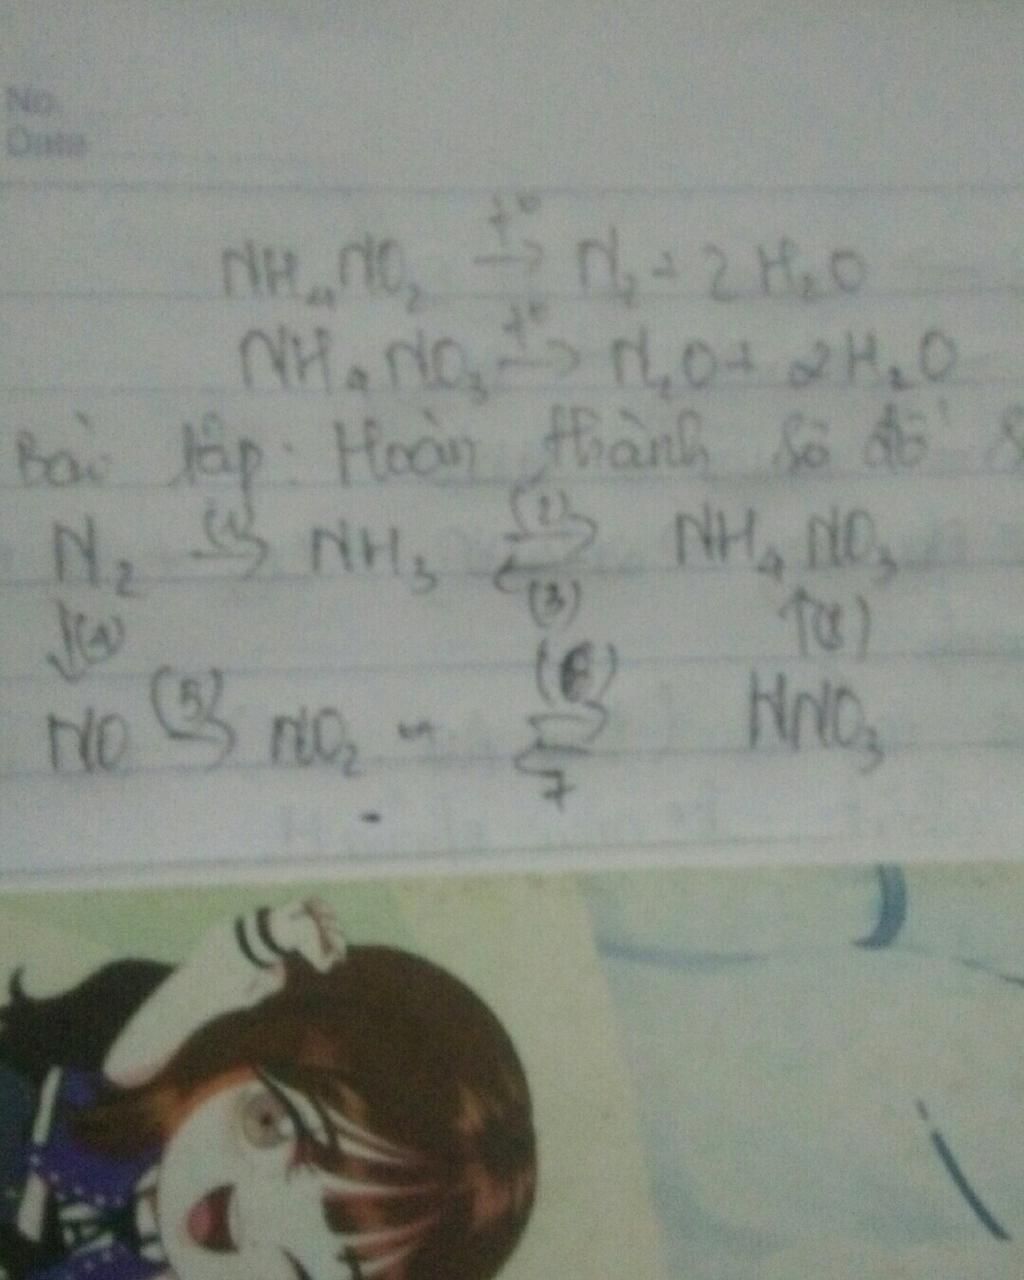 No.
Date
NH₄NO₂ t° → N₂ + 2H₂O
NH₄NO₃ t° → N₂O + 2H₂O
Bài tập: Hoàn thành sơ đồ
N₂ (1) → NH₃ (2) ⇄ (3) NH₄NO₃
↓(4) ↑(8)
NO (5) → NO₂ (6) ⇄ 7 HNO₃